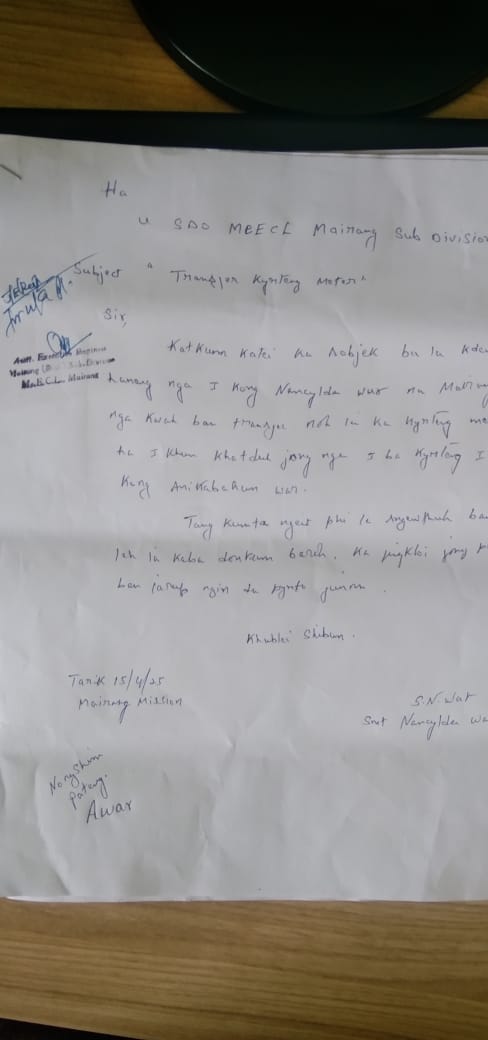 Ha
U SDO MEECL Mairang Sub Division
Subject "Transfer Kyrteng Meter"
Sir,
Katkum katei ka Subjek ba la kdew
haneng nga I Kong Nancylda War na Mairang
nga kwah ban transfer noh ia ka kyrteng me
ha I khun khatduh jong nga I ba kyrteng I
Kong Anikabahun War.
Tang kumta ngeit phi la sngewthuh ban
leh ia kaba donkam baroh. Ka jingkloi jong p
ban iarap ngin da kynto
Khublei Shibun.
Tarik 15/4/25
Mairang Mission
S.N. War
Smt Nancylda Wa
Asstt. Executive Engineer
Mairang Sub-Division
MeECL, Mairang
Nongshim
Pateng.
Awar